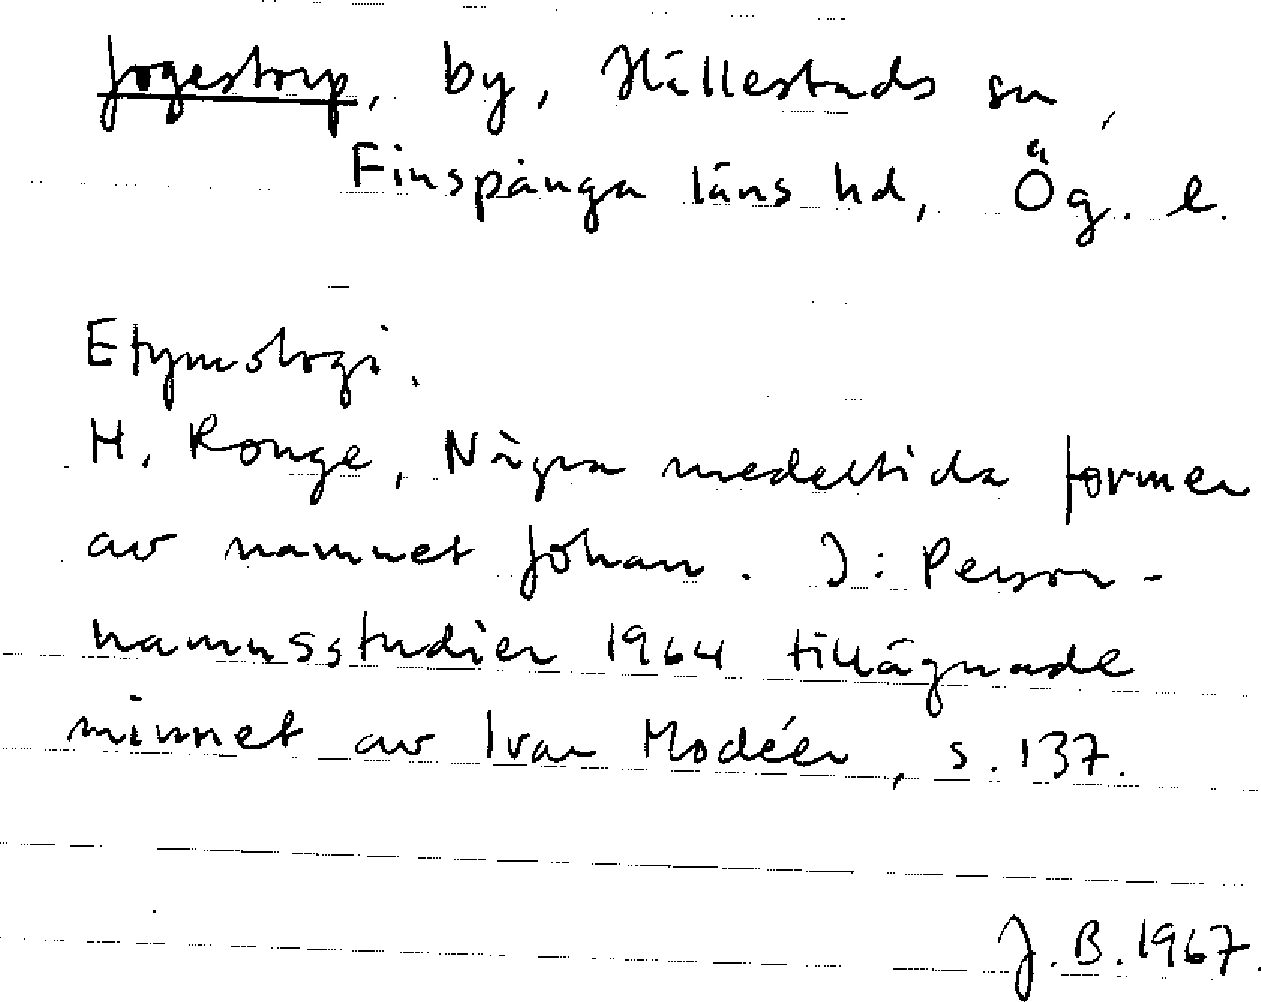 Jogestorp, by, Hällestads sn,
Finspånga läns hd, Ög. l.
Etymologi.
H. Ronge, Några medeltida former
av namnet Johan. I: Person-
namnsstudier 1964 tillägnade
minnet av Ivar Modéer, s. 137.
J. B. 1967.